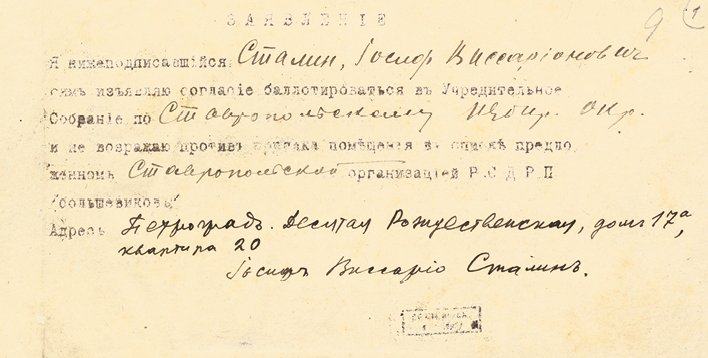 9 1
ЗАЯВЛЕНІЕ
Я нижеподписавшійся Сталин, Іосиф Виссаріонович
симъ изъявляю согласіе баллотироваться въ Учредительное
Собраніе по Ставропольскому Избир. Окр.
и не возражаю противъ порядка помѣщенія въ спискѣ предло
женномъ Ставропольской организаціей Р.С.Д.Р.П.
/большевиковъ/
Адресъ Петроградъ. Десятая Рождественская, домъ 17а,
квартира 20
Іосифъ Виссаріо Сталинъ.